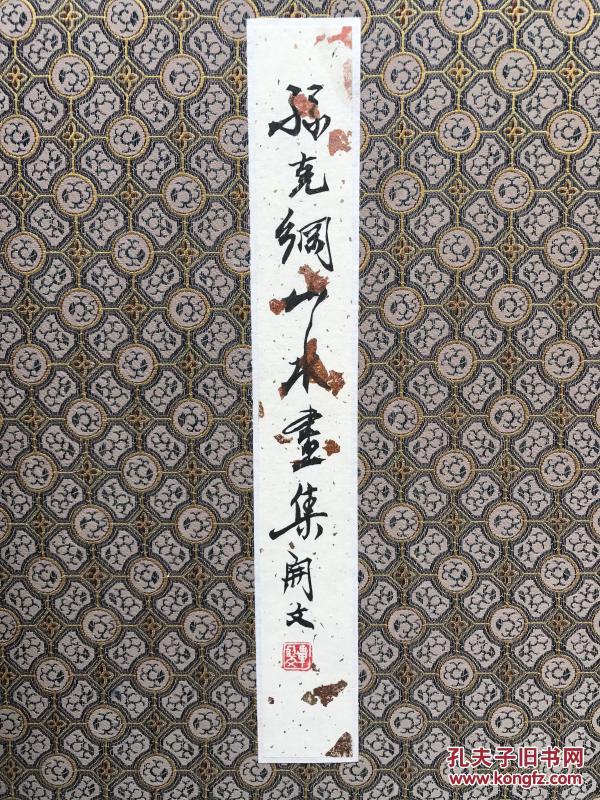 孫克綱山水畫集
開文
孔夫子旧书网
www.kongfz.com